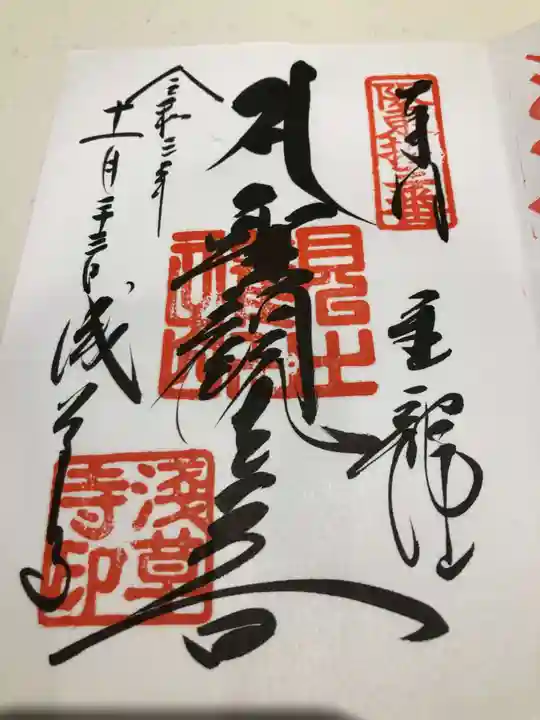 奉拝
坂東十三番
金龍山
聖観世音
令和三年
十一月二十三日 浅草寺
淺草
寺印